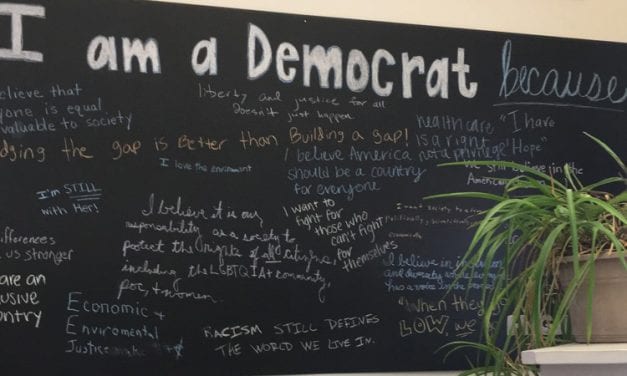 I am a Democrat because
believe that
yone is equal
valuable to society
liberty and justice for all
doesn't just happen
healthcare
is a right
not a privilege
"I have
Hope"
dging the gap is Better than Building a gap!
I love the enviroment
I believe America
should be a country
for everyone
still believe in the
American
I'm STILL
with Her!
I believe it is our
responsibility as a society to
protect the rights of all citizens,
including the LGBTQIA+ community,
poc, + women.
I want to
fight for
those who
can't fight
for
themselves
ifferences
us stronger
are an
usive
ntry
I believe in
and diversity
has a voice in the
"When they go
LOW, we
Economic +
Enviromental
Justice
RACISM STILL DEFINES
THE WORLD WE LIVE IN.